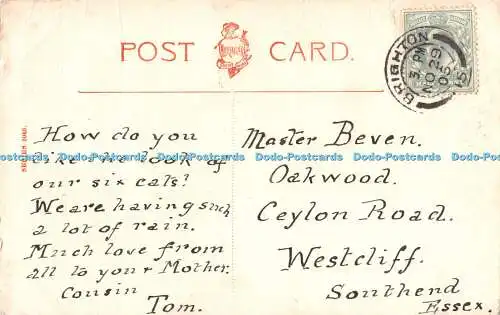 POST CARD.
BRIGHTON
3. PM
NO 29
05
How do you
like the look of
our six cats?
We are having such
a lot of rain.
Much love from
all to you + Mother.
Cousin
Tom.
Master Beven.
Oakwood.
Ceylon Road.
Westcliff.
Southend
Essex.
Dodo-Postcards Dodo-Postcards Dodo-Postcards Dodo-Postcards Dodo-Postcards Dodo-Postcards